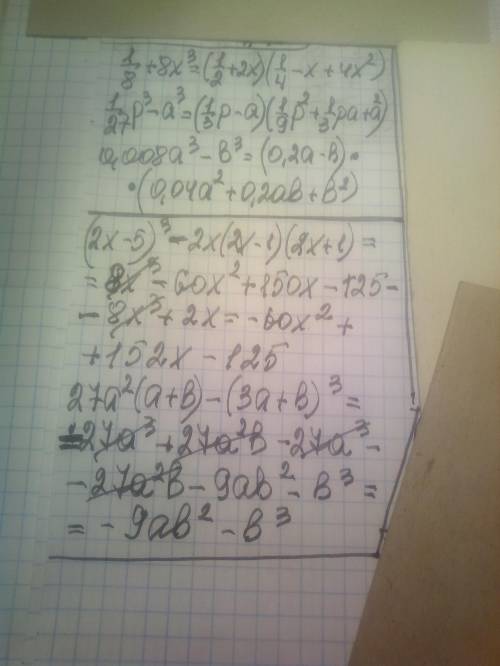 1/8 + 8x³ = (1/2 + 2x)(1/4 - x + 4x²)
1/27 p³ - a³ = (1/3 p - a)(1/9 p² + 1/3 pa + a²)
0,008a³ - b³ = (0,2a - b)·
·(0,04a² + 0,2ab + b²)
(2x - 5)³ - 2x(2x - 1)(2x + 1) =
= 8x³ - 60x² + 150x - 125 -
- 8x³ + 2x = - 60x² +
+ 152x - 125
27a²(a + b) - (3a + b)³ =
= 27a³ + 27a²b - 27a³ -
- 27a²b - 9ab² - b³ =
= - 9ab² - b³